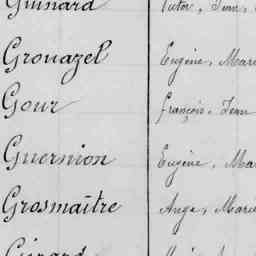 Guinard Victor, Jean,
Grouazel Eugène, Marie
Gour François, Jean
Guernion Eugène, Ma
Grosmaître Ange, Marie
Guinard